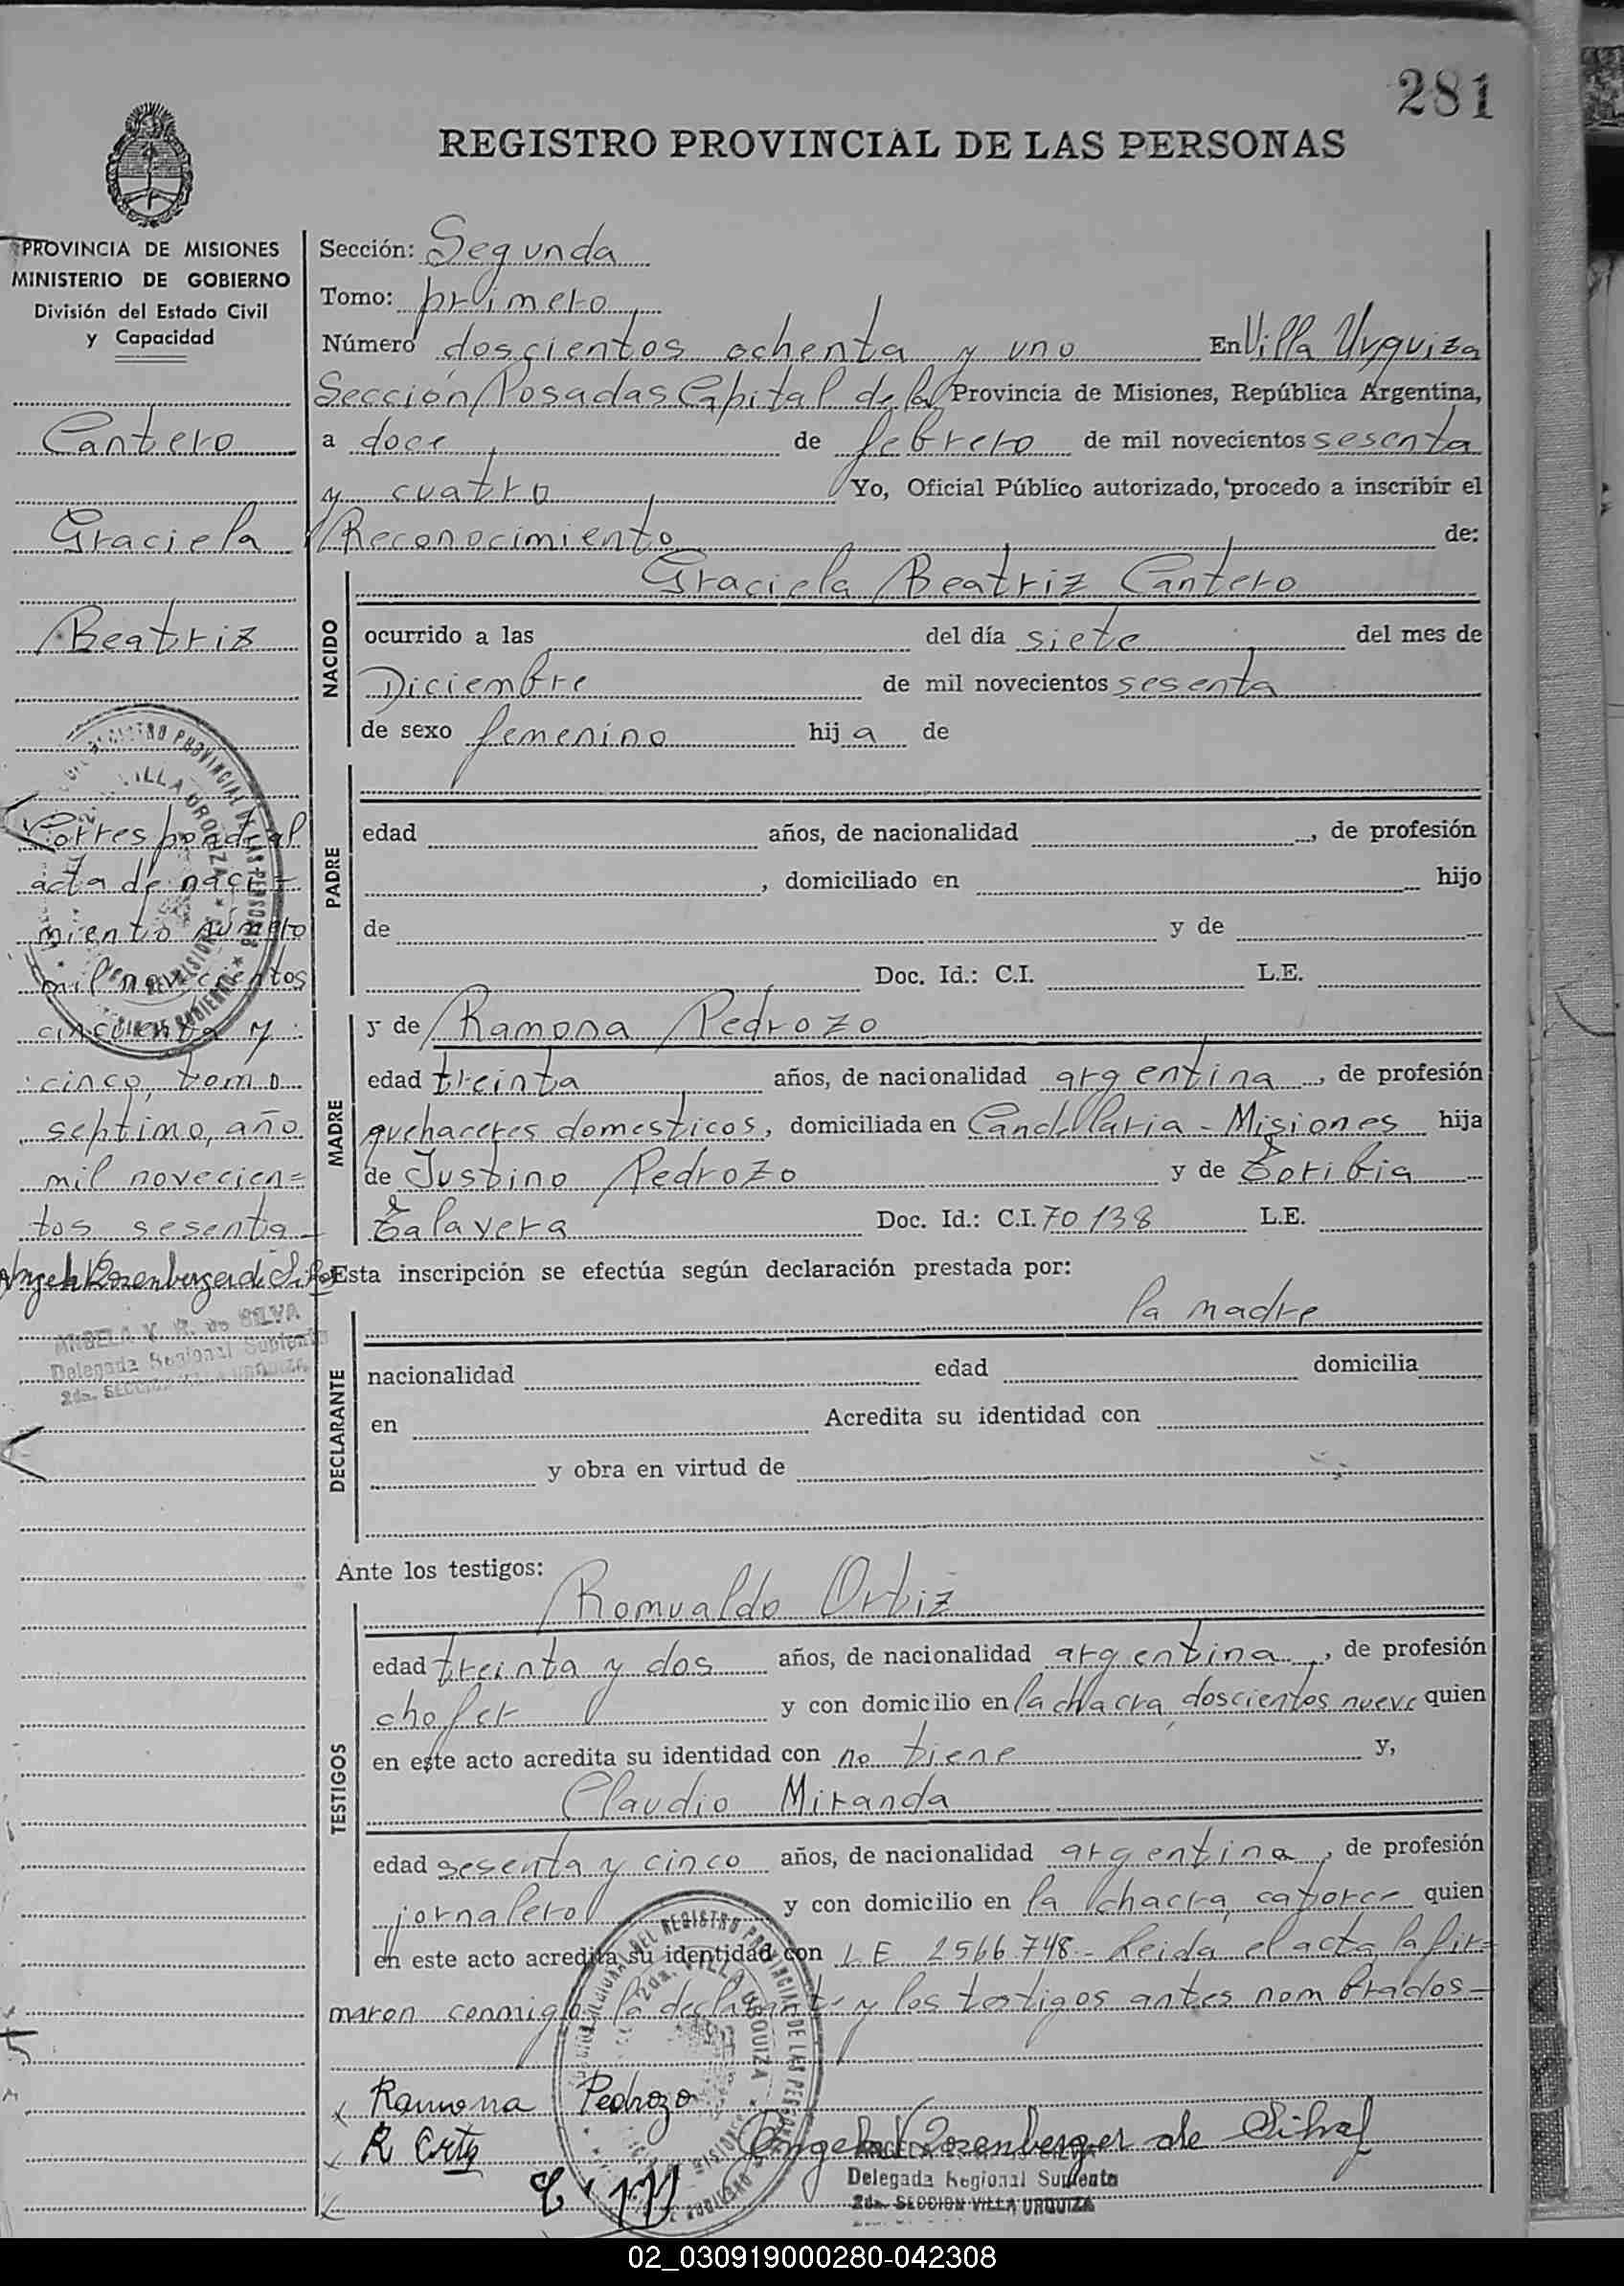 281
REGISTRO PROVINCIAL DE LAS PERSONAS
PROVINCIA DE MISIONES
MINISTERIO DE GOBIERNO
División del Estado Civil
y Capacidad
Cantero
Graciela
Beatriz
Corresponde al
acta de naci-
miento número
mil novecientos
cincuenta y
cinco, tomo
septimo, año
mil novecien=
tos sesenta
Angela V Rozenberger de Silva
ANGELA V. R. de SILVA
Delegada Regional Suplente
2da. SECCION VILLA URQUIZA
Sección: Segunda
Tomo: primero
Número doscientos ochenta y uno En Villa Urquiza
Sección Posadas Capital de la Provincia de Misiones, República Argentina,
a doce de febrero de mil novecientos sesenta
y cuatro Yo, Oficial Público autorizado, procedo a inscribir el
Reconocimiento de:
Graciela Beatriz Cantero
NACIDO
ocurrido a las del día siete del mes de
Diciembre de mil novecientos sesenta
de sexo femenino hij a de
PADRE
edad años, de nacionalidad , de profesión
, domiciliado en hijo
de y de
Doc. Id.: C.I. L.E.
MADRE
y de Ramona Pedrozo
edad treinta años, de nacionalidad argentina , de profesión
quehaceres domesticos, domiciliada en Candelaria - Misiones hija
de Justino Pedrozo y de Toribia
Talavera Doc. Id.: C.I. 70138 L.E.
Esta inscripción se efectúa según declaración prestada por:
la madre
DECLARANTE
nacionalidad edad domicilia
en Acredita su identidad con
y obra en virtud de
Ante los testigos:
TESTIGOS
Romualdo Ortiz
edad treinta y dos años, de nacionalidad argentina , de profesión
chofer y con domicilio en la chacra doscientos nueve quien
en este acto acredita su identidad con no tiene y,
Claudio Miranda
edad sesenta y cinco años, de nacionalidad argentina , de profesión
jornalero y con domicilio en la chacra catorce quien
en este acto acredita su identidad con L E 2566.748.- Leida el acta, la fir=
maron conmigo la declarante y los testigos antes nombrados-
x Ramona Pedrozo
x R Ortiz
Angela V Rozenberger de Silva
ANGELA V. R. de SILVA
Delegada Regional Suplente
2da. SECCION VILLA URQUIZA
x C. M
02_030919000280-042308